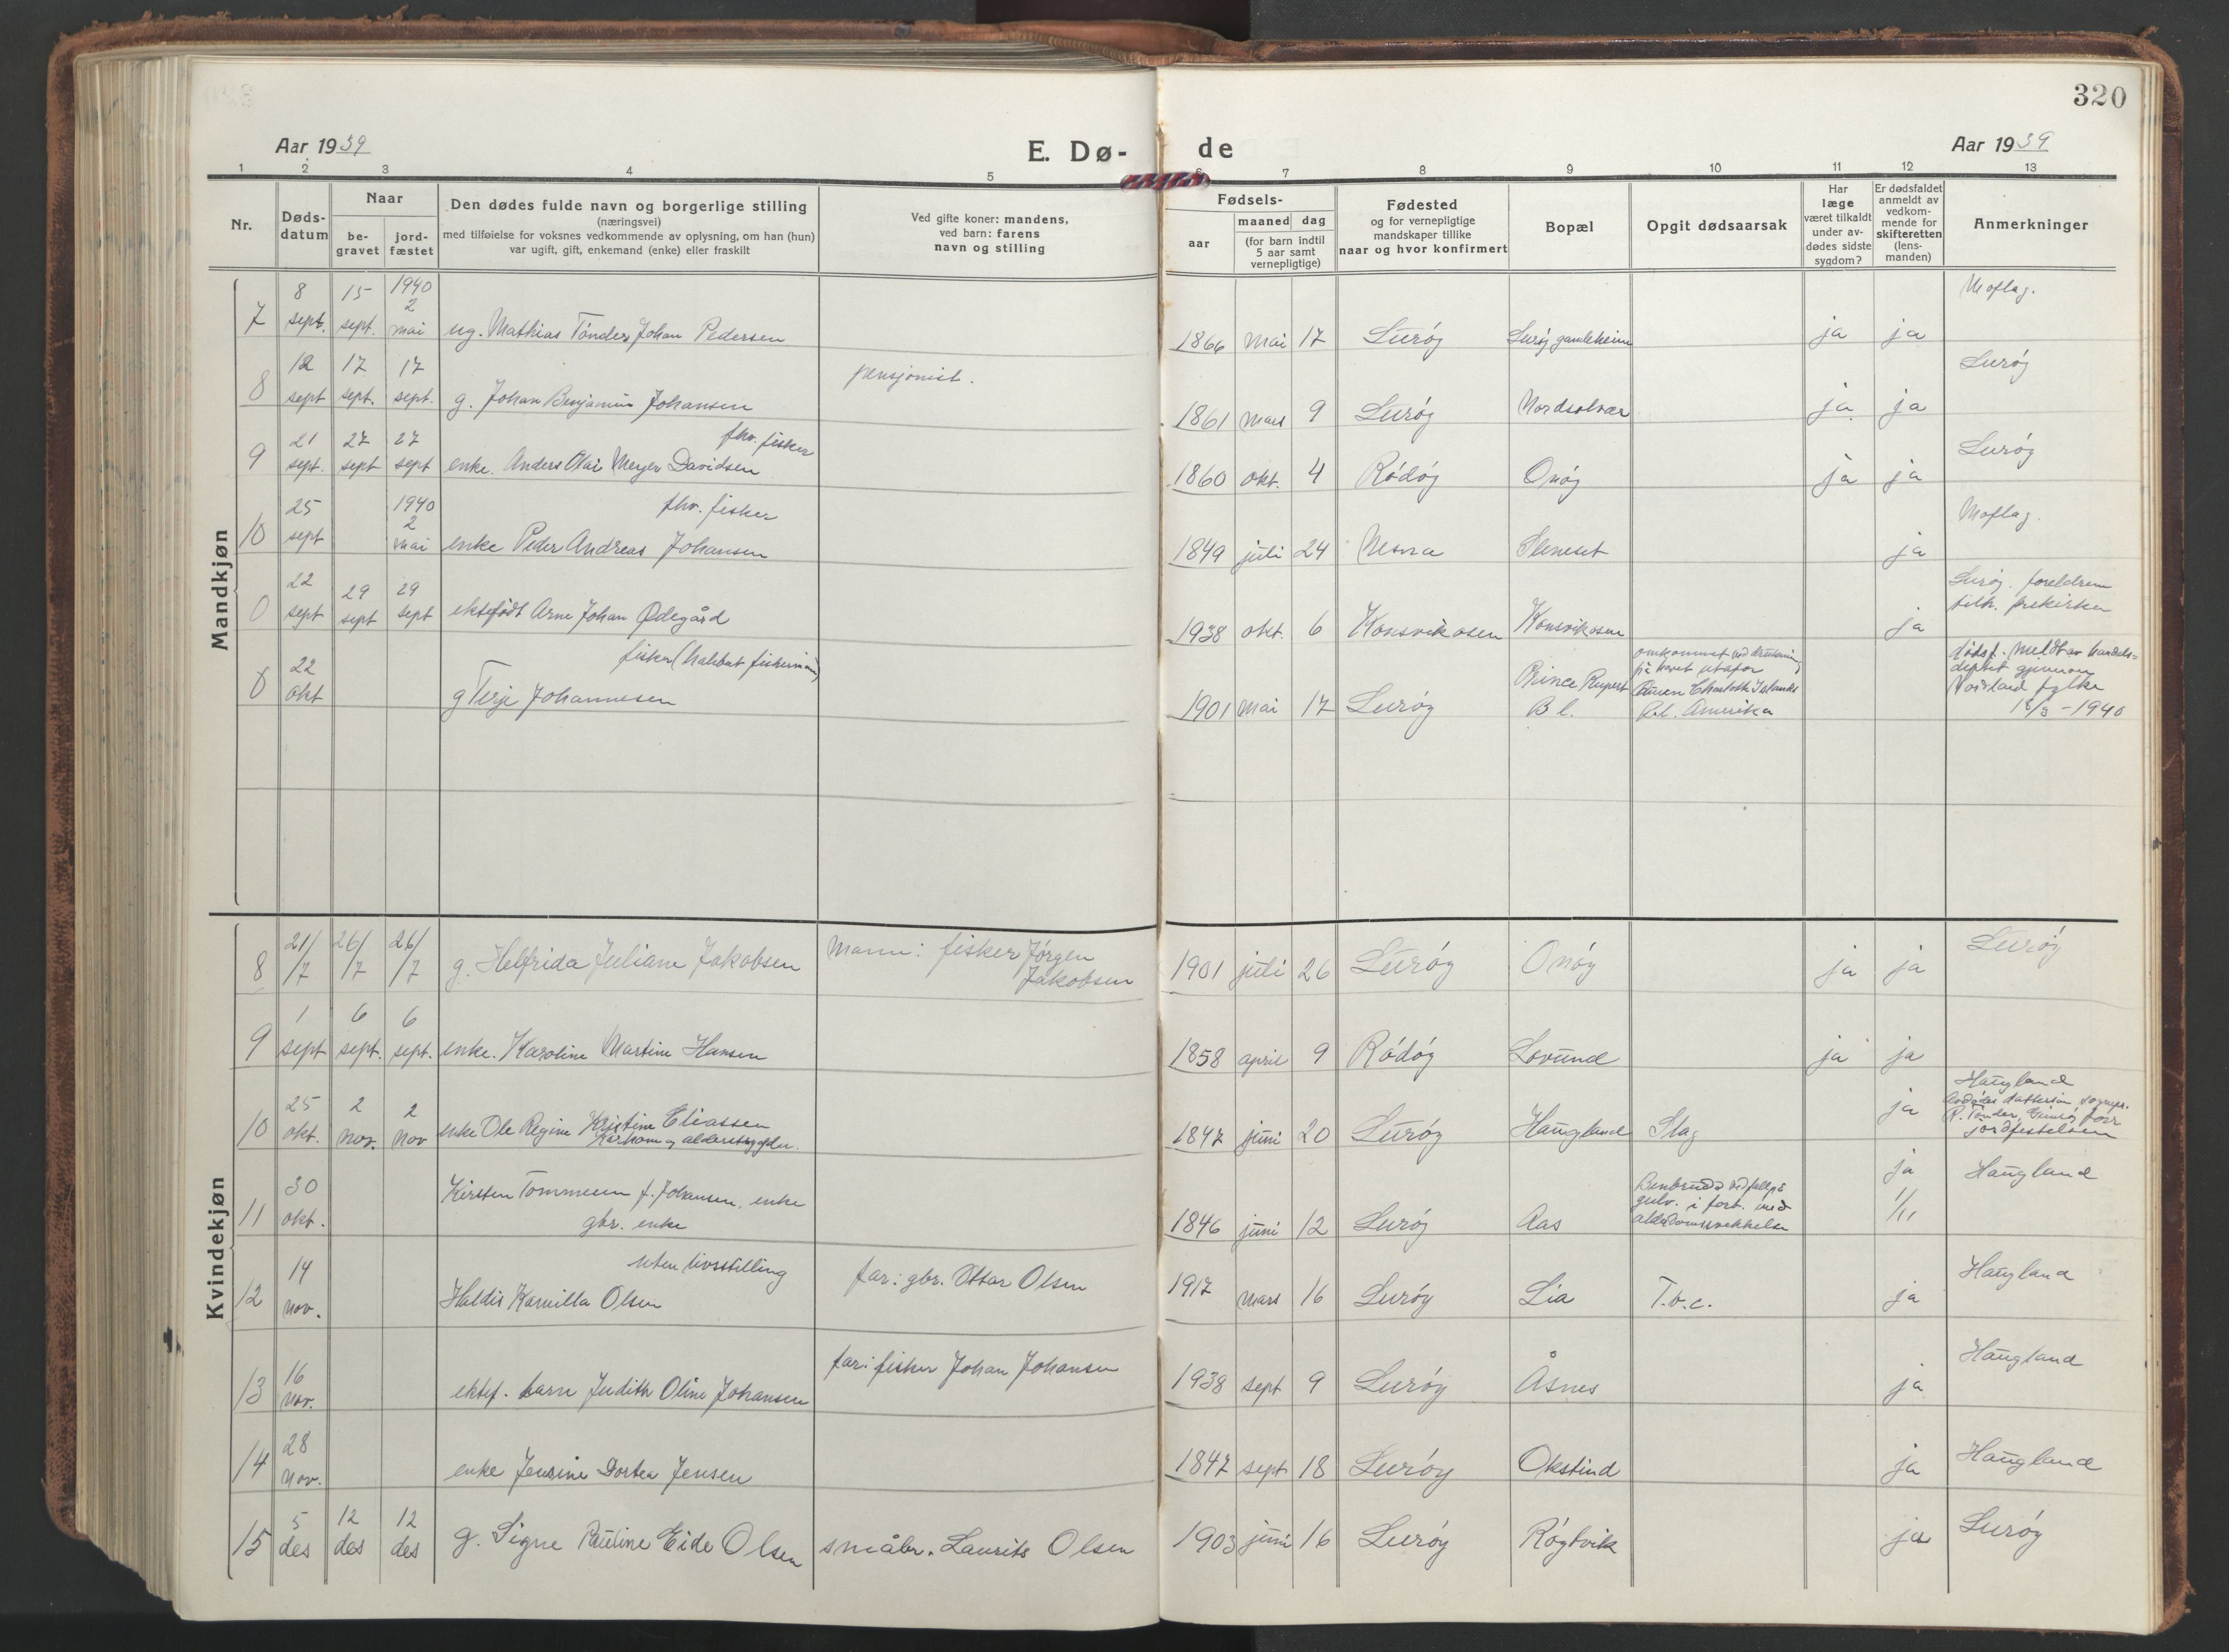 320
Aar 1939
E. Dø- de
Aar 1939
1 2 3 4 5 6 7 8 9 10 11 12 13
Nr.
Døds-
datum
Naar
be-
gravet
jord-
fæstet
Den dødes fulde navn og borgerlige stilling
(næringsvei)
med tilføielse for voksnes vedkommende av oplysning, om han (hun)
var ugift, gift, enkemand (enke) eller fraskilt
Ved gifte koner: mandens,
ved barn: farens
navn og stilling
Fødsels-
aar
maaned dag
(for barn indtil
5 aar samt
vernepligtige)
Fødested
og for vernepligtige
mandskaper tillike
naar og hvor konfirmert
Bopæl
Opgit dødsaarsak
Har
læge
været tilkaldt
under av-
dødes sidste
sygdom?
Er dødsfaldet
anmeldt av
vedkom-
mende for
skifteretten
(lens-
manden)
Anmerkninger
Mandkjøn
8 15 1940 Moflag.
2
7 sept. sept. mai ug. Mathias Tønder Johan Pedersen 1866 mai 17 Lurøy Lurøy gamleheim ja ja
12 17 17 pensjonist. Lurøy
8 sept sept. sept. g. Johan Benjamin Johansen 1861 mars 9 Lurøy Nordsolvær ja ja
21 27 27 fhv. fisker Lurøy
9 sept. sept sept enke. Anders Olai Meyer Davidsen 1860 okt. 4 Rødøy Onøy ja ja
25 1940 fhv. fisker Moflag.
2
10 sept mai enke Peder Andreas Johansen 1849 juli 24 Nesna Sleneset ja
22 29 29 Lurøy. foreldrene
tilh. frikirken
0 sept sept sept ektefødt Arne Johan Ødegård 1938 okt. 6 Konsvikosen Konsvikosen ja
fisker (halibut fisherman)
22 omkommet ved drukning dødsf. meldt av handels-
på havet utafor deptet gjennom
Prince Rupert Queen Charlotte Islands Nordland fylke
0 okt g Terje Johannesen 1901 mai 17 Lurøy B.C. B.C. Amerika 18/3-1940
Kvindekjøn
21/ 26/ 26/ Mann: fisker Jørgen Lurøy
8 7 7 7 g. Helfrida Juliane Jakobsen Jakobsen 1901 juli 26 Lurøy Onøy ja ja
1 6 6
9 sept sept. sept. enke. Karoline Martine Hansen 1858 april 9 Rødøy Lovund ja ja
25 2 2 Haugland
Avdødes dattersøn sogpr.
R. Tønder, Gimsøy forr.
jordfestelsen
10 okt. nov. nov enke Ole Regine Kristine Eliassen 1847 juni 20 Lurøy Haugland Slag ja
Kårkone og alderstrygdn.
30 Kirsten Tommesen f. Johansen, enke Benbrudd ved fall på ja Haugland
gulv. i forb. med 1/11
11 okt. gbr. enke 1846 juni 12 Lurøy Aas alderdomssvekkelse
14 uten livsstilling far: gbr. Ottar Olsen Haugland
12 nov. Haldis Kamilla Olsen 1917 mars 16 Lurøy Lia T.b.c. ja
16 far: fisker Johan Johansen Haugland
13 nov. ektef. barn Judith Oline Johansen 1938 sept 9 Lurøy Åsnes ja
28
14 nov. enke Jensine Dortea Jensen 1847 sept 18 Lurøy Okstind ja Haugland
5 12 12 Lurøy
15 des des des g. Signe Pauline Eide Olsen småbr. Laurits Olsen 1903 juni 16 Lurøy Røytvik ja